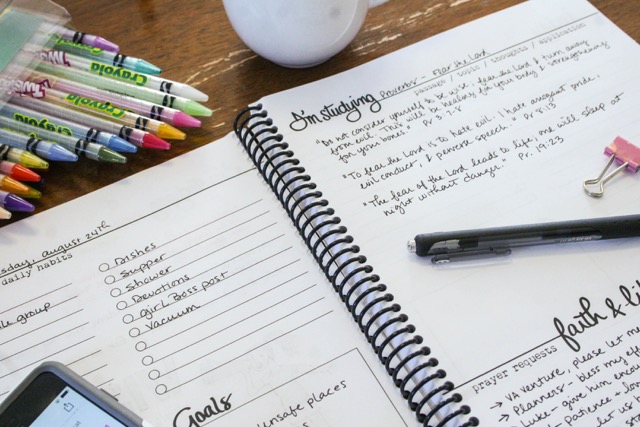 Crayola
Crayola
Crayola
Crayola
Twistables
sday, august 24th
daily habits
group
Dishes
Supper
Shower
Devotions
girl Boss post
Vacuum
Goals
unsafe places
I'm studying
Proverbs - Fear the Lord
passage / topic / thoughts / application
"Do not consider yourself to be wise; fear the Lord & turn away
from evil. This will be healing for your body & strengthening
for your bones." Pr. 3:7-8
"To fear the Lord is to hate evil. I hate arrogant pride,
evil conduct, & perverse speech." Pr. 8:13
"The fear of the Lord leads to life; one will sleep at
night without danger." Pr. 19:23
faith & li
prayer requests
→ VA venture, please let me
→ Planners - bless my ef
→ Luke - give him enou
patience + lo
let us